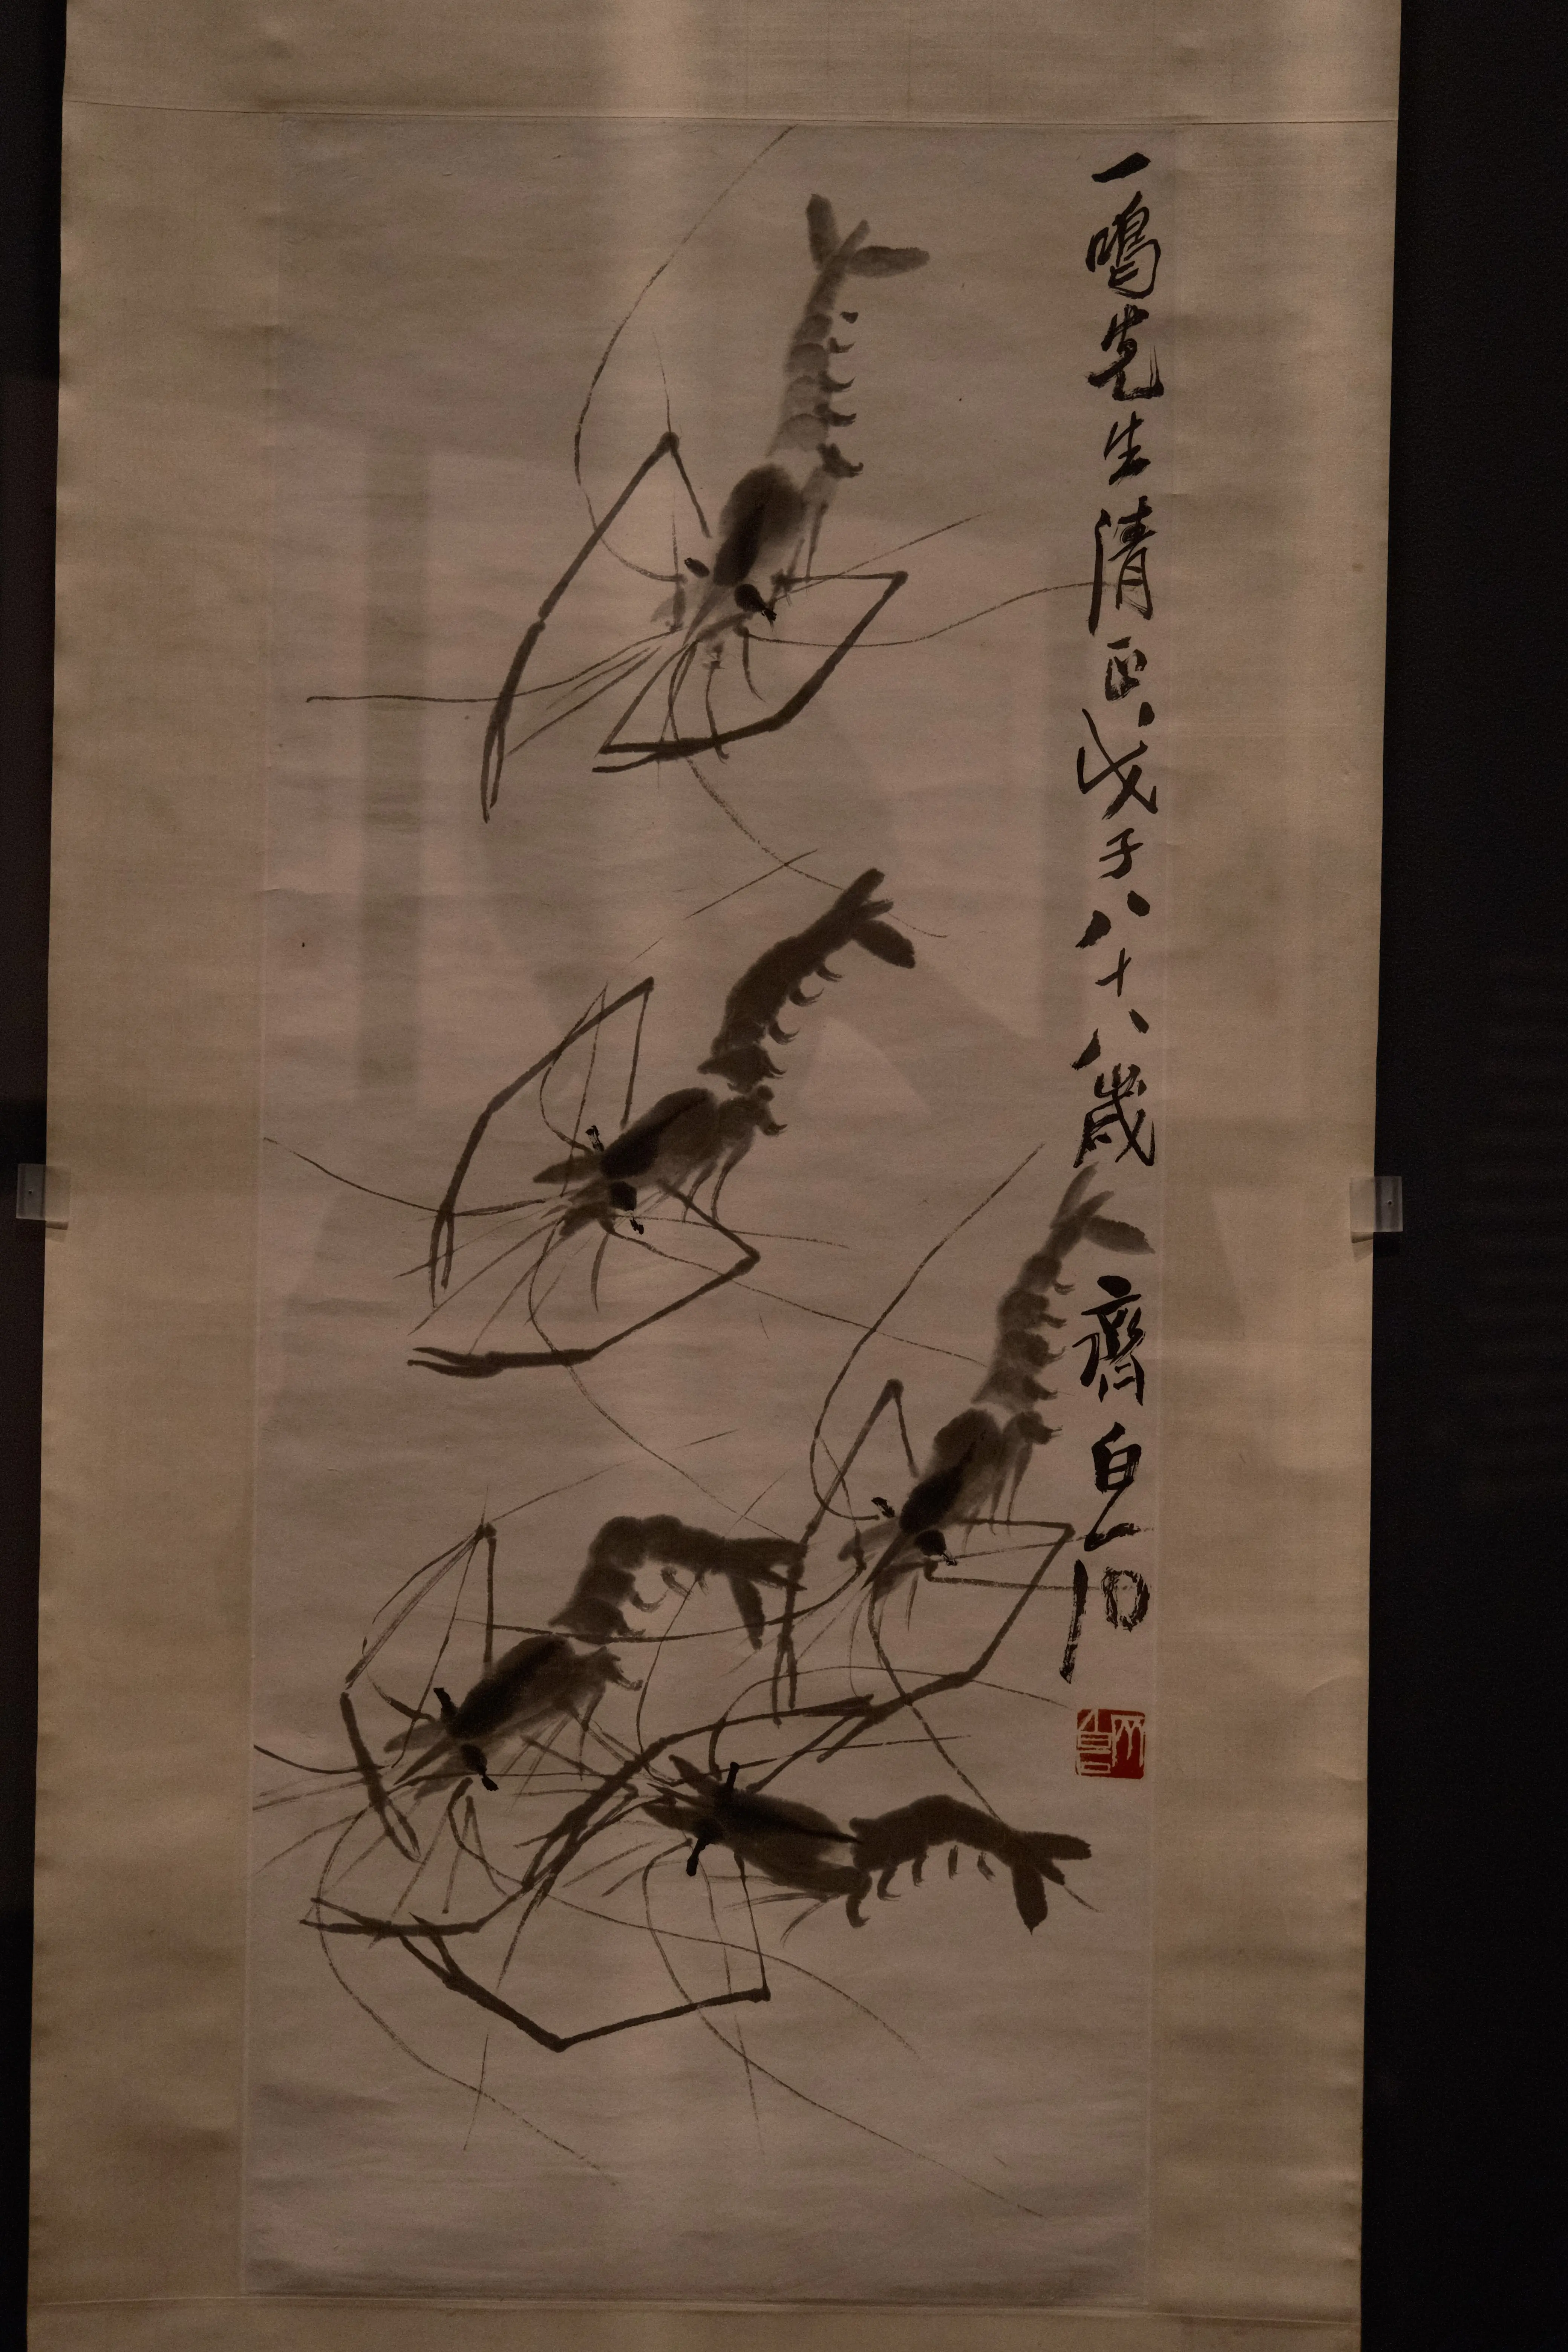 一鳴先生清正戊子八十八歲齊白石